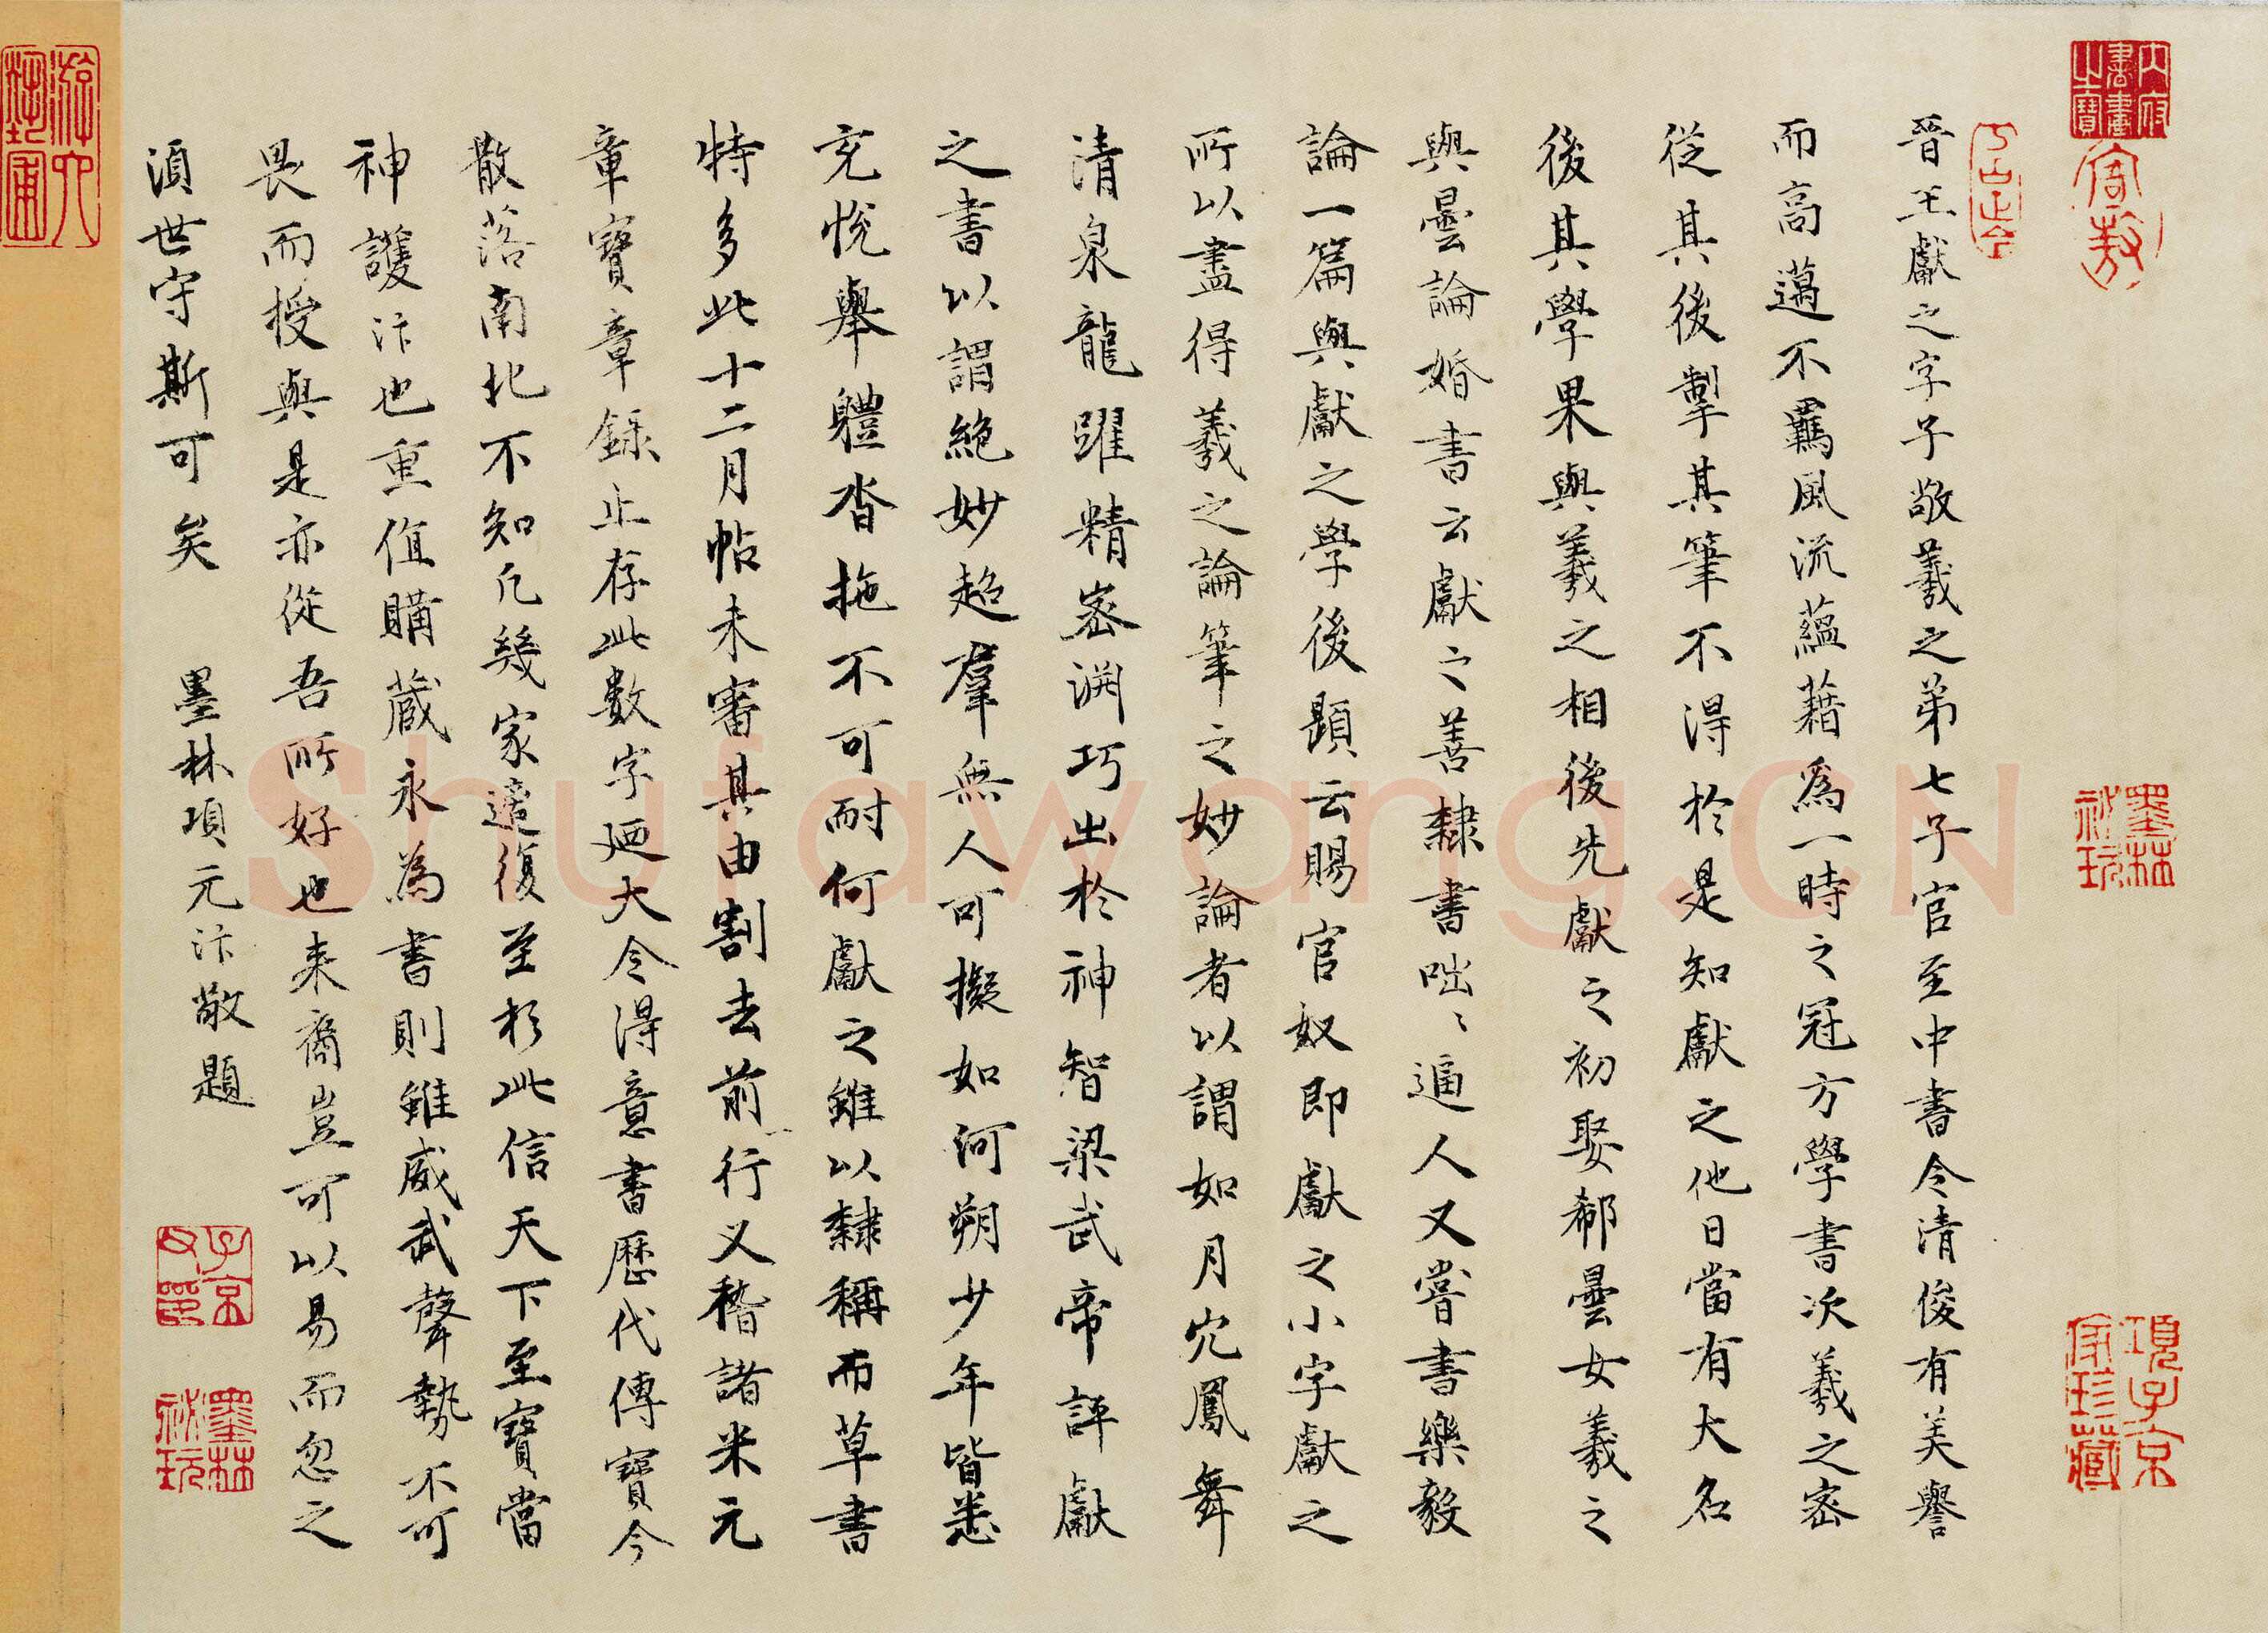 晉王獻之字子敬羲之弟七子官至中書令清俊有美譽
而高邁不羈風流蘊藉爲一時之冠方學書次羲之密
從其後掣其筆不得於是知獻之他日當有大名
後其學果與羲之相後先獻之初娶郗曇女羲之
與曇論婚書云獻之善隸書咄〻逼人又嘗書樂毅
論一篇與獻之學後題云賜官奴即獻之小字獻之
所以盡得羲之論筆之妙論者以謂如月穴鳳舞
清泉龍躍精密淵巧出於神智梁武帝評獻
之書以謂絕妙超羣無人可擬如河朔少年皆悉
充悅舉體沓拖不可耐何獻之雖以隸稱而草書
特多此十二月帖未審其由割去前行又稽諸米元
章寶章錄止存此數字迺大令得意書歷代傳寶今
散落南北不知凡幾家遞復至於此信天下至寶當
神護汴也重值購藏永為書則雖威武聲勢不可
畏而授與是亦從吾所好也来裔豈可以易而忽之
湏世守斯可矣 墨林項元汴敬題
內府書畫之寶
寄敖
墨林祕玩
項子京家珍藏
子京父印
墨林祕玩
游六藝圃
Shufawang.CN